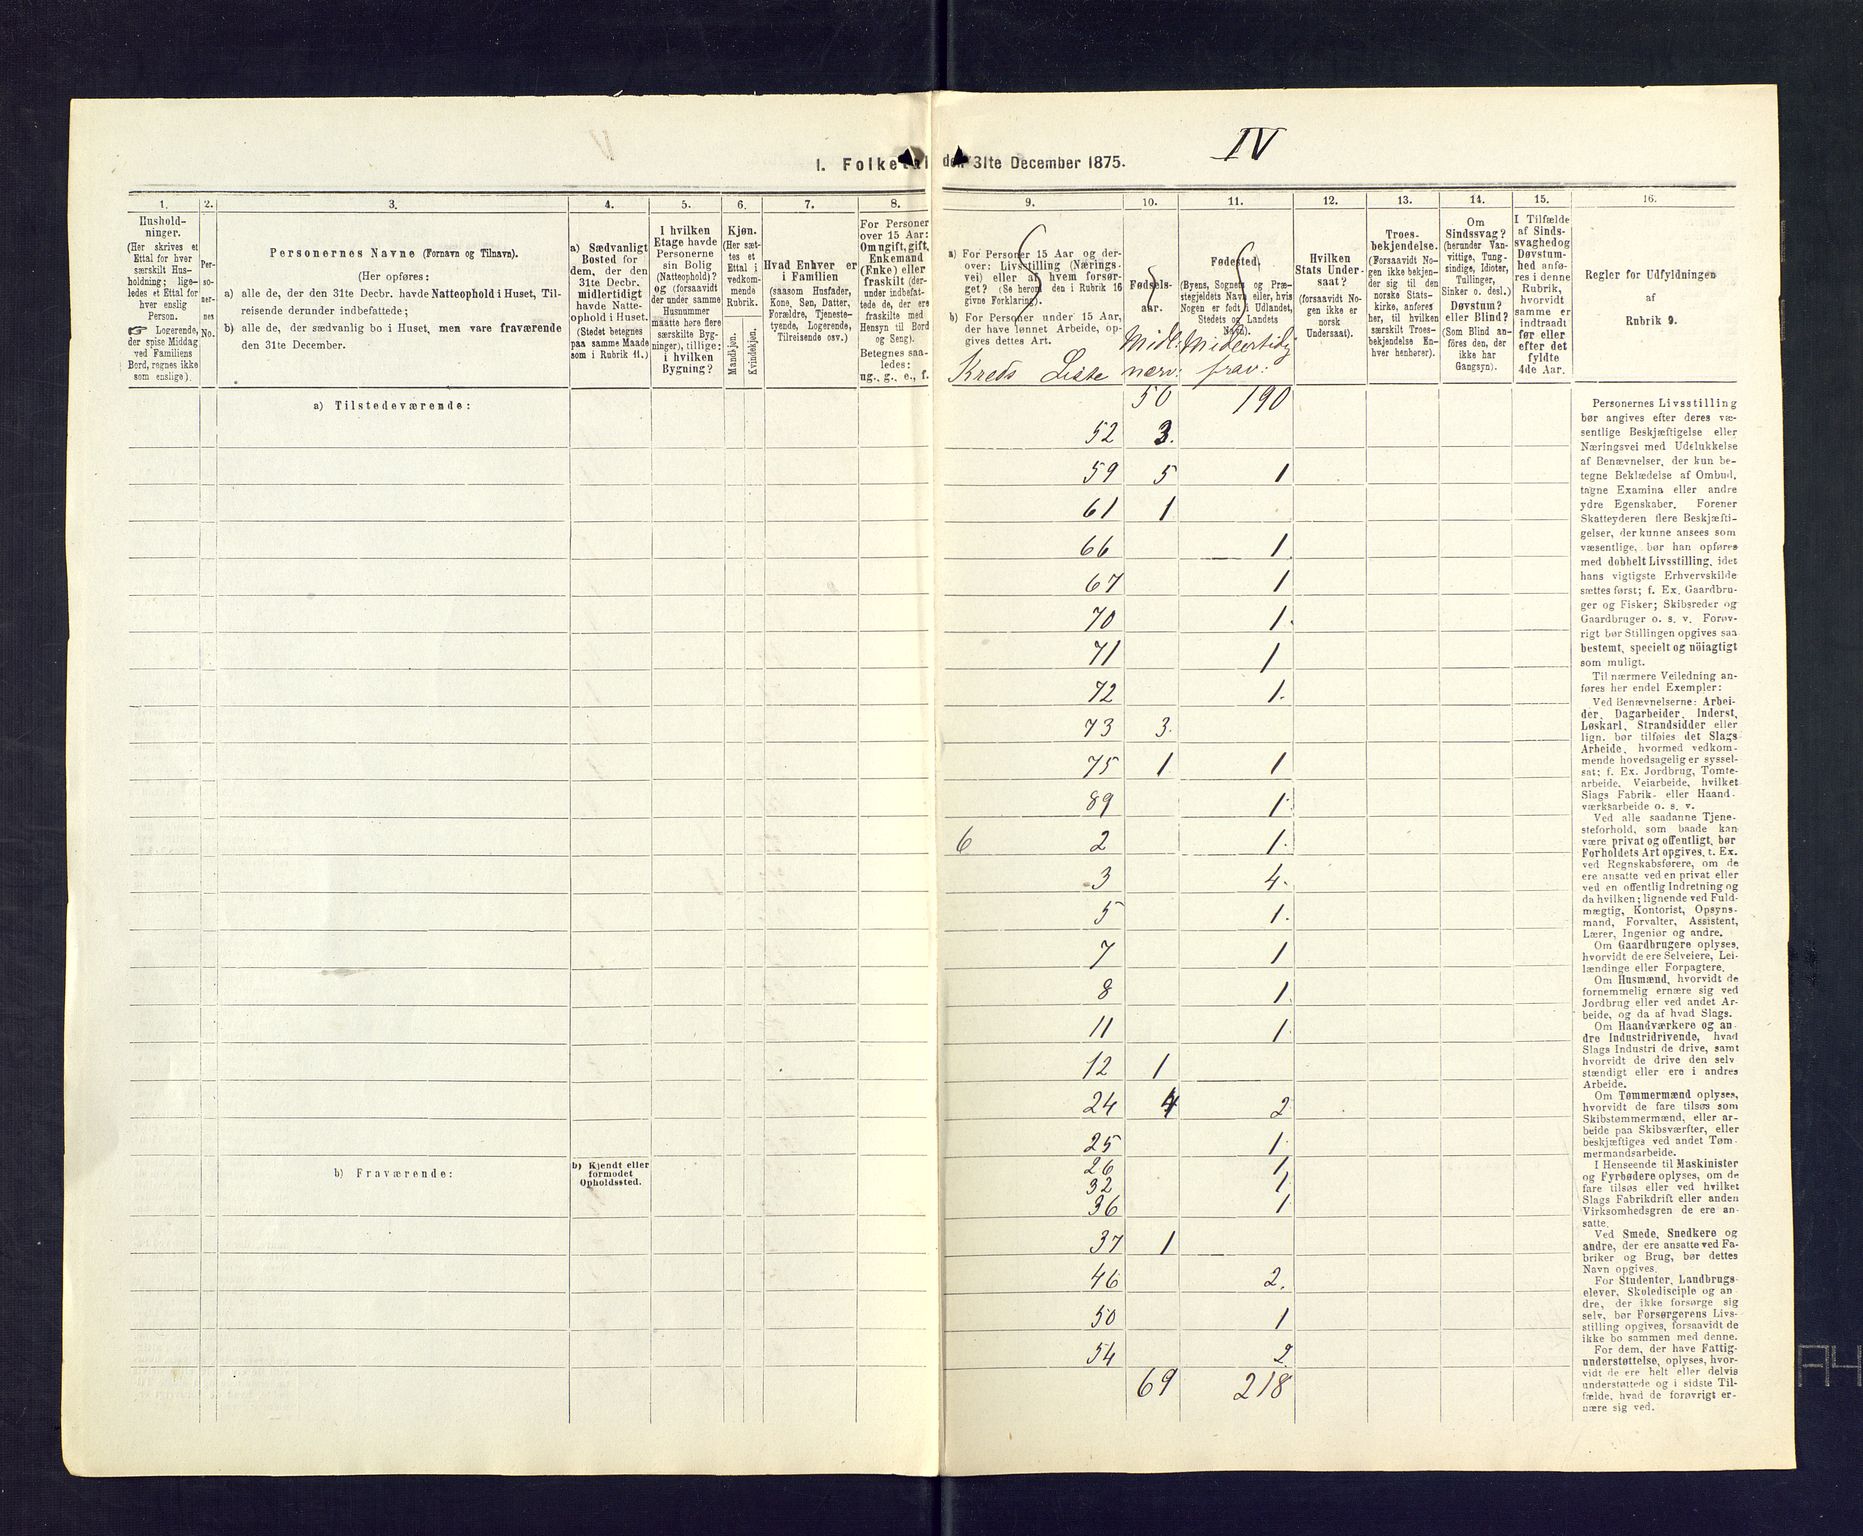 IV
1. Folketal den 31te December 1875.
1.
2.
3.
4.
5.
6.
7.
8.
9.
10.
11.
12.
13.
14.
15.
16.
Hushold-
ninger.
(Her skrives et
Ettal for hver
særskilt Hus-
holdning; lige-
ledes et Ettal for
hver enslig
Person.
☞ Logerende,
der spise Middag
ved Familiens
Bord, regnes ikke
som enslige).
Per-
so-
ner-
nes
No.
Personernes Navne (Fornavn og Tilnavn).
(Her opføres:
a) alle de, der den 31te Decbr. havde Natteophold i Huset, Til-
reisende derunder indbefattede;
b) alle de, der sædvanlig bo i Huset, men vare fraværende
den 31te December.
a) Sædvanligt
Bosted for
dem, der den
31te Decbr.
midlertidigt
havde Natte-
ophold i Huset.
(Stedet betegnes
paa samme Maade
som i Rubrik 11.)
I hvilken
Etage havde
Personerne
sin Bolig
(Natteophold)?
og (forsaavidt
der under samme
Husnummer
maatte høre flere
særskilte Byg-
ninger), tillige:
i hvilken
Bygning?
Kjøn.
(Her sæt-
tes et
Ettal i
vedkom-
mende
Rubrik.
Mandskjøn.
Kvindekjøn.
Hvad Enhver er
i Familien
(saasom Husfader,
Kone, Søn, Datter,
Forældre, Tjeneste-
tyende, Logerende,
Tilreisende osv.)
For Personer
over 15 Aar:
Om ugift, gift,
Enkemand
(Enke) eller
fraskilt (der-
under indbefat-
tede de, der ere
fraskilte med
Hensyn til Bord
og Seng).
Betegnes saa-
ledes:
ug., g., e., f.
a) For Personer 15 Aar og der-
over: Livsstilling (Nærings-
vei) eller af hvem forsør-
get? (Se herom den i Rubrik 16
givne Forklaring).
b) For Personer under 15 Aar,
der have lønnet Arbeide, op-
gives dettes Art.
Kreds Liste
Fødsels-
aar.
Midl:
nærv:
Fødested.
(Byens, Sognets og Præ-
stegjeldets Navn eller, hvis
Nogen er født i Udlandet,
Stedets og Landets
Navn).
Midlertidig
frav:
Hvilken
Stats Under-
saat?
(forsaavidt No-
gen ikke er
norsk
Undersaat).
Troes-
bekjendelse.
(Forsaavidt No-
gen ikke bekjen-
der sig til den
norske Stats-
kirke, anføres
her, til hvilken
særskilt Troes-
bekjendelse En-
hver henhører).
Om
Sindssvag?
(herunder Van-
vittige, Tung-
sindige, Idioter,
Tullinger,
Sinker o. desl.)
Døvstum?
eller Blind?
(Som Blind an-
føres den, der
ikke har
Gangsyn).
I Tilfælde
af Sinds-
svaghed og
Døvstum-
hed anfø-
res i denne
Rubrik,
hvorvidt
samme er
indtraadt
før eller
efter det
fyldte
4de Aar.
Regler for Udfyldningen
af
Rubrik 9.
a) Tilstedeværende:
50 190
52 3.
59 5 1
61 1
66 1.
67 1
70 1.
71 1
72 1.
73 3.
75 1 1
89 1.
6 2 1.
3 4.
5 1.
7 1
8 1.
11 1.
12 1
24 4 2
25 1.
b) Fraværende:
b) Kjendt eller
formodet
Opholdssted.
26 1
32 1
36 1
37 1
46 2.
50 1
54 2
69 218
Personernes Livsstilling
bør angives efter deres væ-
sentlige Beskjæftigelse eller
Næringsvei med Udelukkelse
af Benævnelser, der kun be-
tegne Beklædelse af Ombud,
tagne Examina eller andre
ydre Egenskaber. Forener
Skatteyderen flere Beskjæfti-
gelser, der kunne ansees som
væsentlige, bør han opføres
med dobbelt Livsstilling, idet
hans vigtigste Erhvervskilde
sættes først; f. Ex. Gaardbru-
ger og Fisker; Skibsreder og
Gaardbruger o. s. v. Forøv-
rigt bør Stillingen opgives saa
bestemt, specielt og nöiagtigt
som muligt.
Til nærmere Veiledning an-
føres her endel Exempler:
Ved Benævnelserne: Arbei-
der, Dagarbeider, Inderst,
Løskarl, Strandsidder eller
lign. bør tilføies det Slags
Arbeide, hvormed vedkom-
mende hovedsagelig er syssel-
sat; f. Ex. Jordbrug, Tomte-
arbeide, Veiarbeide, hvilket
Slags Fabrik- eller Haand-
værksarbeide o. s. v.
Ved alle saadanne Tjene-
steforhold, som baade kan
være privat og offentligt, bør
Forholdets Art opgives, t. Ex.
ved Regnskabsførere, om de
ere ansatte ved en privat eller
ved en offentlig Indretning og
da hvilken; lignende ved Fuld-
mægtig, Kontorist, Opsyns-
mand, Forvalter, Assistent,
Lærer, Ingeniør og andre.
Om Gaardbrugere oplyses,
hvorvidt de ere Selveiere, Lei-
lændinge eller Forpagtere.
Om Husmænd, hvorvidt de
fornemmelig ernære sig ved
Jordbrug eller ved andet Ar-
beide, og da af hvad Slags.
Om Haandværkere og an-
dre Industridrivende, hvad
Slags Industri de drive, samt
hvorvidt de drive den selv
stændigt eller ere i andres
Arbeide.
Om Tømmermænd oplyses,
hvorvidt de fare tilsøs som
Skibstømmermænd, eller ar-
beide paa Skibsværfter, eller
beskjæftiges ved andet Tøm-
mermandsarbeide.
I Henseende til Maskinister
og Fyrbødere oplyses, om de
fare tilsøs eller ved hvilket
Slags Fabrikdrift eller anden
Virksomhedsgren de ere an-
satte.
Ved Smede, Snedkere og
andre, der ere ansatte ved Fa-
briker og Brug, bør dettes
Navn opgives.
For Studenter, Landbrugs-
elever, Skoledisciple og an-
dre, der ikke forsørge sig
selv, bør Forsørgerens Livs-
stilling opgives, forsaavidt de
ikke bo sammen med denne.
For dem, der have Fattig-
understøttelse, oplyses, hvor-
vidt de ere helt eller delvis
understøttede og i sidste Til-
fælde, hvad de forøvrigt er-
nære sig ved.